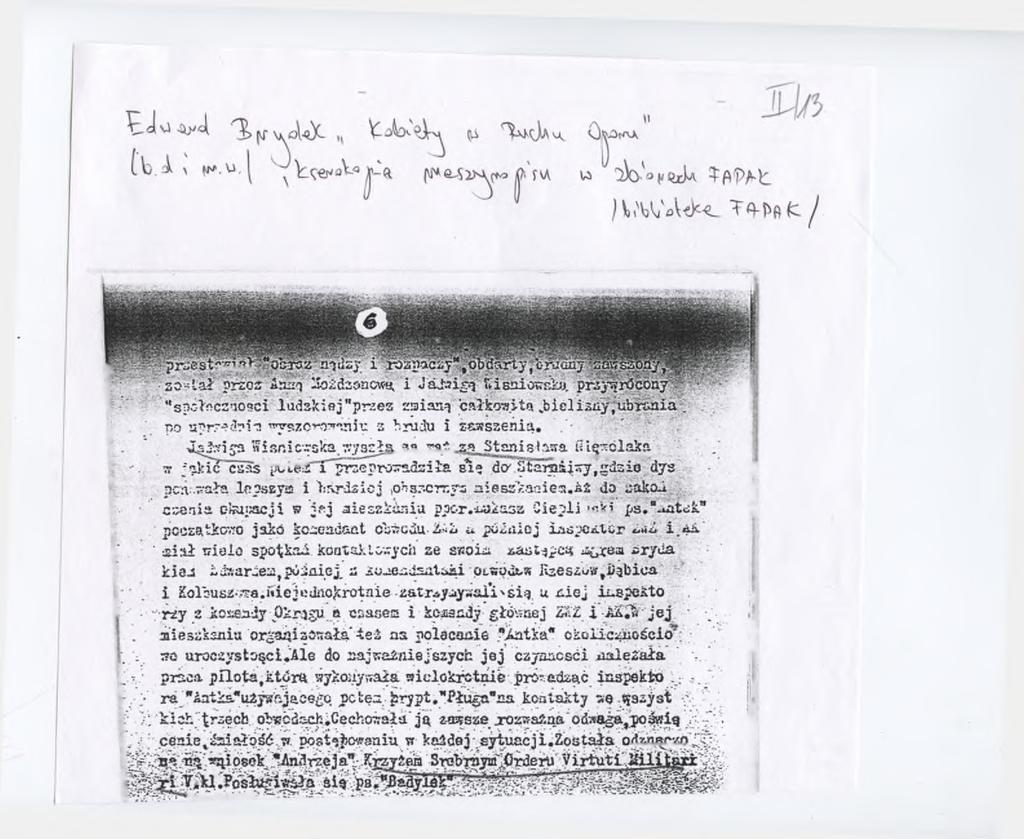 II/13
Edward Brydek „Kobiety w Ruchu Oporu"
(b.d i m.w./, kserokopia maszynopisu w zbiorach FAPAK
/biblioteka FAPAK/
6
przestawiał "obraz nądzy i rozpaczy",obdarty,brudny zawszony,
został przez Anną Możdżonową i Jadwigą Wisniowską przywrócony
"społecznosci ludzkiej"przez zmianą całkowitą bielizny,ubrania
po uprzednim wyszorowaniu z brudu i zawszenia.
Jadwiga Wisniowska wyszła za mąż za Stanisława
w jakiś czas potem i przeprowadziła się do Staroniwy,gdzie dys
ponowała lepszym i bardziej obszernym mieszkaniem.Aż do zakoń
czenia okupacji w jej mieszkaniu ppor.Łukasz Ciepliński ps."Antek"
początkowo jako komendant obwodu ZWZ a później inspektor ZWZ i AK
miał wiele spotkań kontaktowych ze swoim zastępcą mgrem Bryda
kiem Edwardem,później z komendantami obwodów Rzeszów,Dąbica
i Kolbuszowa.Niejednokrotnie zatrzymywali się u niej inspekto
rzy z komendy Okręgu a czasem i komendy głównej ZWZ i AK.W jej
mieszkaniu organizowała też na polecanie "Antka" okolicznościo
we uroczystości.Ale do najważniejszych jej czynności należała
praca pilota,którą wykonywała wielokrotnie prowadząc inspekto
ra "Antka"używającego potem krypt."Pługa"na kontakty we wszyst
kich trzech obwodach.Cechowała ją zawsze rozważna odwaga,poświę
cenie,śmiałość w postępowaniu w każdej sytuacji.Została odznaczo
na na wniosek "Andrzeja" Krzyżem Srebrnym Orderu Virtuti Militari
ri V.kl.Posługiwała się ps."Badylek"